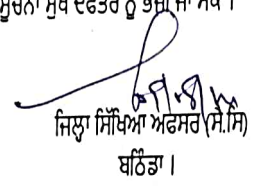 ਸੂਚਨਾ ਮੁੱਖ ਦਫਤਰ ਨੂੰ ਭੇਜੀ ਜਾ ਸਕੇ।
ਜਿਲ੍ਹਾ ਸਿੱਖਿਆ ਅਫਸਰ (ਸੈ.ਸਿ)
ਬਠਿੰਡਾ।